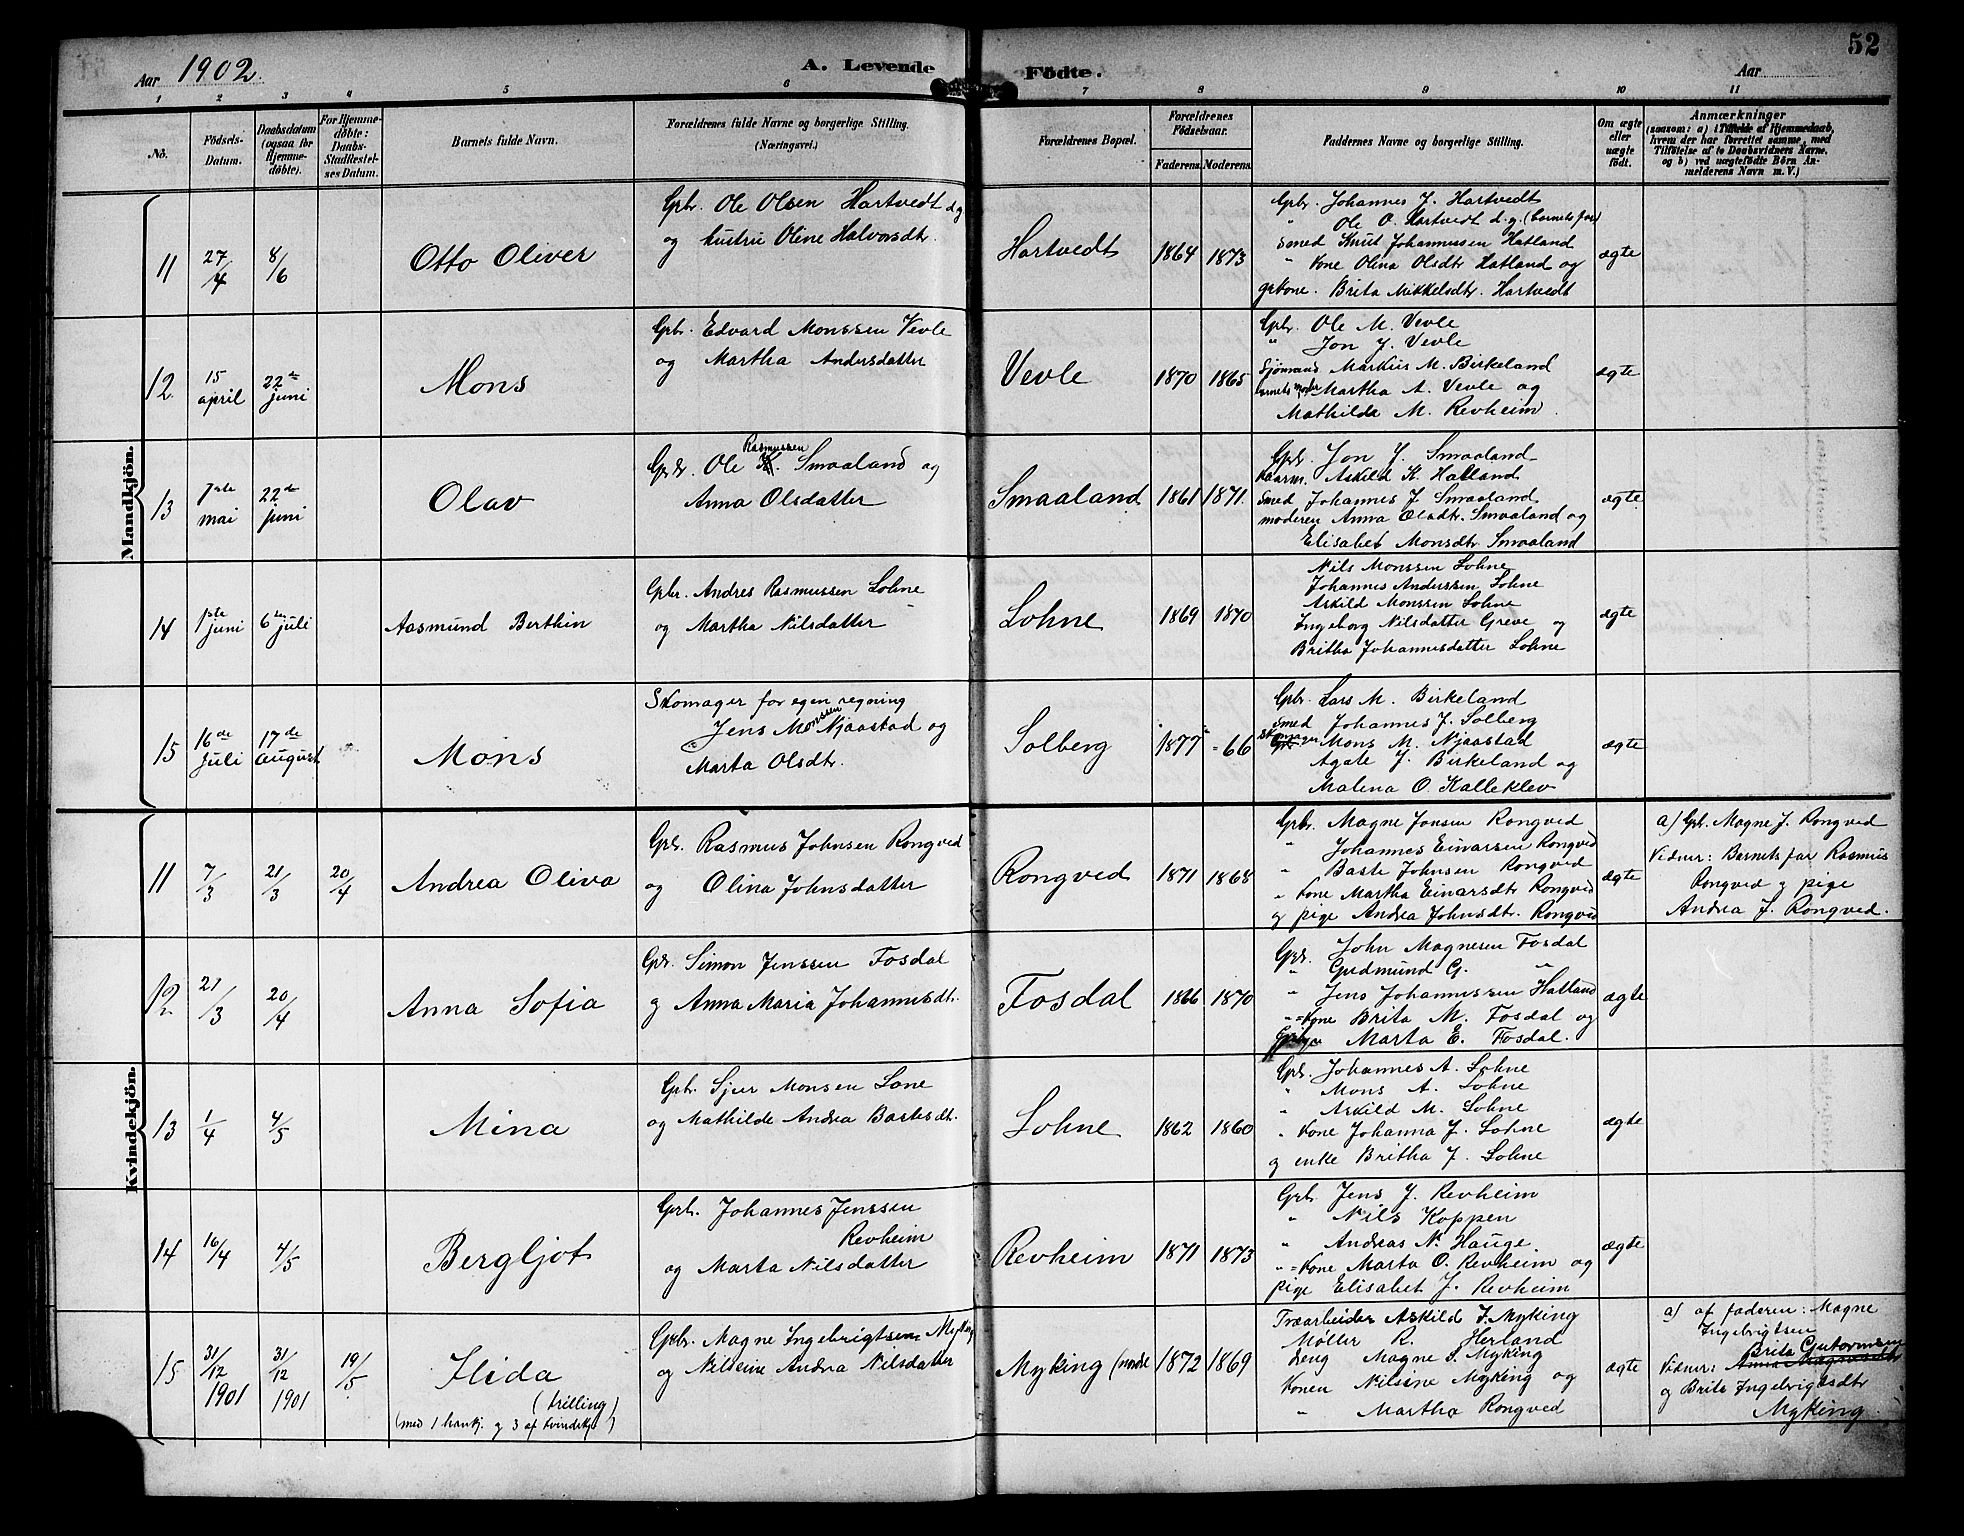 Aar 1902. A. Levende Fødte. Aar 52
1 2 3 4 5 6 7 8 9 10 11
No. Fødsels-Datum. Daabsdatum (ogsaa for Hjemmedøbte). For Hjemmedøbte: Daabs-Stadfæstelses Datum. Barnets fulde Navn. Forældrenes fulde Navne og borgerlige Stilling. (Næringsvei.) Forældrenes Bopæl. Forældrenes Fødselsaar. Faderens. Moderens. Faddernes Navne og borgerlige Stilling. Om ægte eller uægte født. Anmærkninger (saasom: a) i Tilfælde af Hjemmedaab, hvem der har forrettet samme, med Tilføielse af to Daabsvidners Navne, og b) ved uægtefødte Børn Anmelderens Navn m. V.)
Mandkjön.
11 27/4 8/6 Otto Oliver
Gbr. Ole Olsen Hartvedt d.y.
og hustru Oline Halvorsdtr.
Hartvedt 1864 1873
Gbr. Johannes J. Hartvedt
" Ole O. Hartvedt d.y. (barnets far)
Smed Knut Johannessen Hatland
" kone Olina Olsdtr Hatland og
gbkone. Brita Mikkelsdtr. Hartvedt
ægte
12. 15 april 22de juni Mons
Gbr. Edvard Monssen Vevle
og Martha Andersdatter
Vevle 1870 1865
Gbr. Ole M. Vevle
" Jon J. Vevle
Sjømand Markus M. Birkeland
barnets moder Martha A. Vevle og
Mathilda M. Revheim.
ægte
13 1ste mai 22de juni Olav
Gbr. Ole Rasmussen Smaaland og
Anna Olsdatter
Smaaland 1861 1871.
Gbr. Jon J. Smaaland
Kaarm. Askild K. Hatland
Smed Johannes J. Smaaland
moderen Anna Olsdtr. Smaaland og
Elisabet Monsdtr Smaaland
ægte
14 1ste juni 6te juli Aasmund Berthin
Gbr. Andres Rasmussen Lohne
og Martha Nilsdatter
Lohne 1869 1870
Nils Monssen Lohne
Johannes Anderssen Lohne
Askild Monssen Lohne
Ingeborg Nilsdatter Greve og
Britha Johannesdatter Lohne
ægte
15 16de juli 17de august Mons
Skomager for egen regning
Jens Monssen Njaastad og
Marta Olsdtr.
Solberg 1877 - 66
Gbr. Lars M. Birkeland
Smed Johannes J. Solberg
Skomager Mons M. Njaastad
Agate J. Birkeland og
Malena O. Kalleklev
ægte
Kvindekjön.
11 7/3 21/3 20/4 Andrea Oliva
Gbr. Rasmus Johnsen Rongved
og Olina Johnsdatter
Rongved 1871 1868
Gbr. Magne Jonsen Rongved
" Johannes Einarsen Rongved
" Baste Johnsen Rongved
" kone Martha Einarsdtr Rongved
og pige Andrea Johnsdtr. Rongved
ægte
a) Gbr. Magne J. Rongved
Vidner: Barnets far Rasmus
Rongved og pige
Andrea J. Rongved.
12 21/3 20/4 Anna Sofia
Gbr. Simon Jenssen Fosdal
og Anna Maria Johannesdtr.
Fosdal 1866 1870
Gbr. John Magnesen Fosdal
" Gudmund G. "
" Jens Johannessen Hatland
" kone Brita M. Fosdal og
Marta E. Fosdal.
ægte
13 1/4 4/5 Mina
Gbr. Sjur Monsen Lone
og Mathilde Andrea Bastesdtr.
Lohne 1862 1860
Gbr. Johannes A. Lohne
" Mons A. Lohne
" Askild M. Lohne
" kone Johanna J. Lohne
og enke Britha J. Lohne
ægte
14 16/4 4/5 Bergljot
Gbr. Johannes Jenssen
Revheim
og Marta Nilsdatter
Revheim 1871 1873
Gbr. Jens J. Revheim
" Nils Koppen
" Andreas N. Hauge
" kone Marta O. Revheim og
pige Elisabet J. Revheim
ægte
15 31/12 1901 31/12 1901 19/5 Hida
(trilling)
(med 1 hankj. og 3 af kvindekjø)
Gbr. Magne Ingebrigtsen Myking
og Nilsine Andrea Nilsdatter
Myking (nordre 1872 1869
Træarbeider Askild J. Myking
Møller R. Herland
Magne S. Myking
Konen Nilsine Myking og
" Martha Rongved
ægte
a) af faderen: Magne
Ingebrigtsen
Brita Gutormsen
Vidner: Anna Magnesdtr
og Brita Ingebrigtsdtr
Myking.